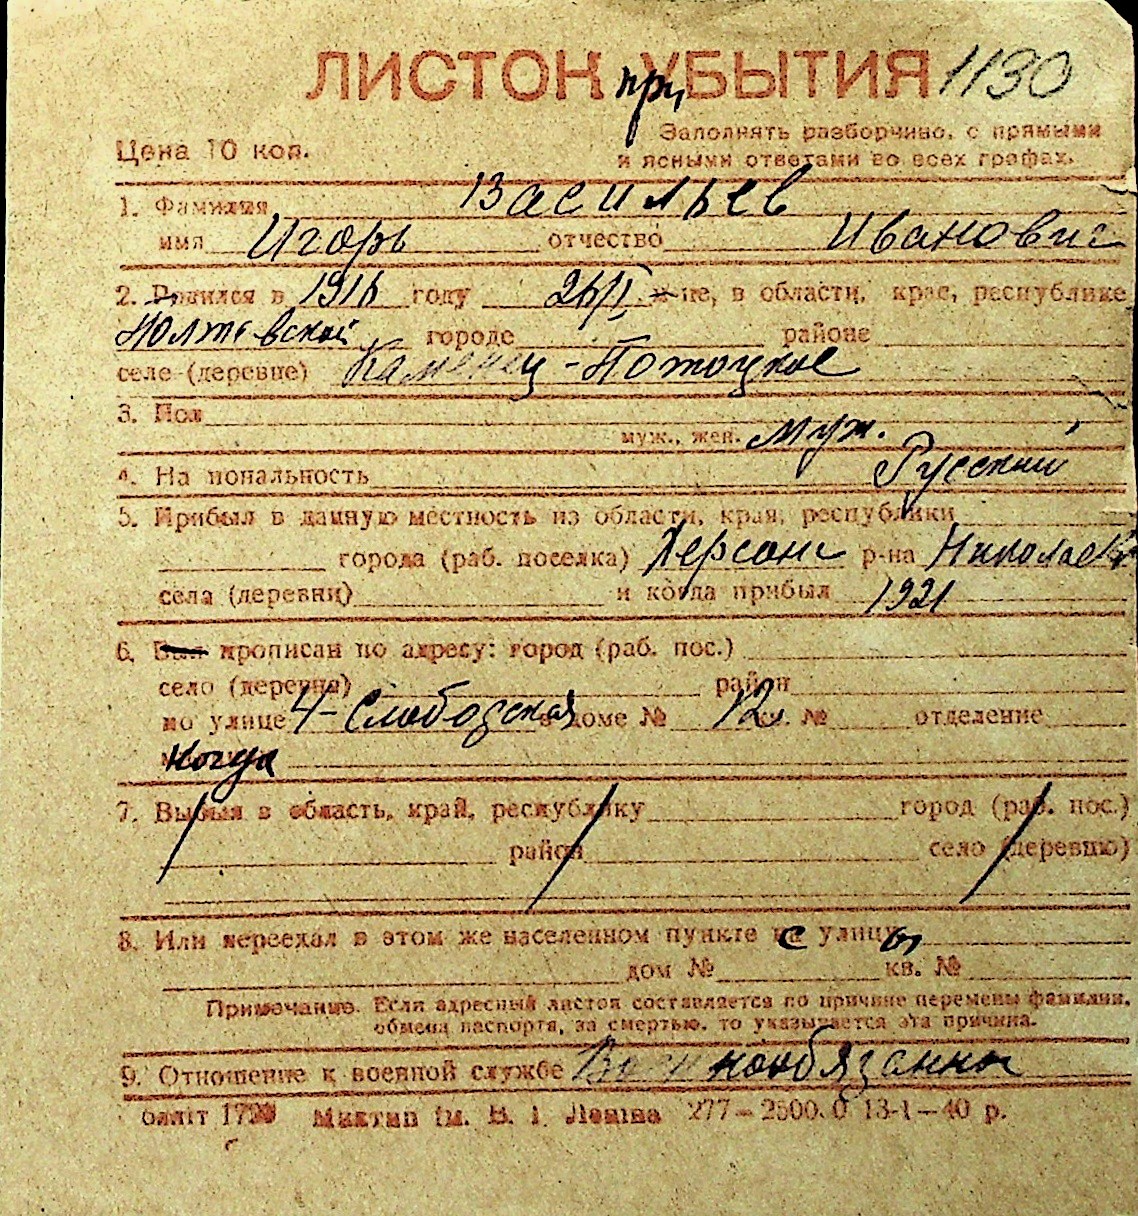 ЛИСТОК при УБЫТИЯ 1130
Цена 10 коп.
Заполнять разборчиво, с прямыми
и ясными ответами во всех графах.
1. Фамилия Васильев
имя Игорь отчество Иванович
2. Родился в 1916 году м-це, в области, крае, республике
Полтавской городе районе
селе (деревце) Каменец-Потоцкое
3. Пол
муж., жен. муж.
4. На иональность Русский
5. Прибыл в данную местность из области, края, республики
города (раб. поселка) Херсон р-на Николаев
села (деревни) и когда прибыл 1921
6. Был прописан по адресу: город (раб. пос.)
село (деревня) район
по улице 4-Слободская в доме № 12 кв. № отделение
Когда
7. Выбыл в область, край, республику город (раб. пос.)
район село (деревню)
8. Или переехал в этом же населенном пункте с улицы
дом № кв. №
Примечание. Если адресный листок составляется по причине перемены фамилии,
обмена паспорта, за смертью, то указывается эта причина.
9. Отношение к военной службе Военнообязанны
Миктип ім. В. І. Леніна 277—2500. 0 13-1—40 р.